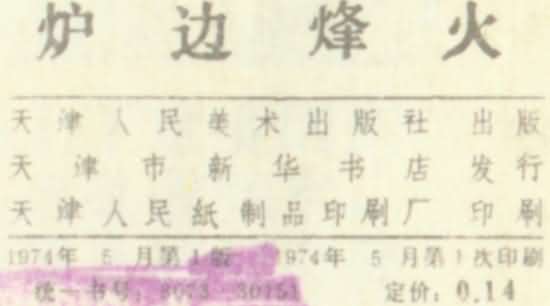 炉边烽火
天津人民美术出版社 出版
天津市新华书店发行
天津人民纸制品印刷厂 印刷
1974年 5 月第1版 1974年 5 月第1次印刷
统一书号：8073·30151 定价：0.14